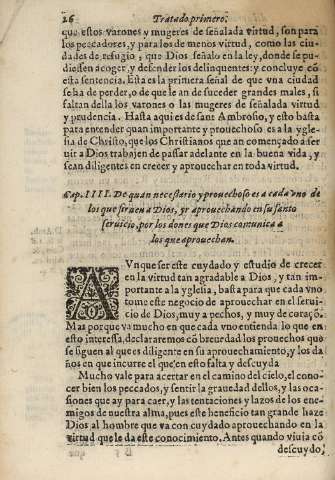 26 Tratado primero.
que estos varones y mugeres de señalada virtud, son para
los peccadores, y para los de menos virtud, como las ciu-
dades de refugio, que Dios señalo en la ley, donde se pu-
diessen acoger, y defender los delinquentes: y concluye cō
esta sentencia. Esta es la primera señal de que vna ciudad
se ha de perder, o de que le an de suceder grandes males, si
faltan della los varones o las mugeres de señalada virtud
y prudencia. Hasta aqui es de sant Ambrosio, y esto basta
para entender quan importante y prouechoso es a la ygle-
sia de Christo, que los Christianos que an començado a ser
uir a Dios trabajen de passar adelante en la buena vida, y
sean diligentes en crecer y aprouechar en toda virtud.
Cap. IIII. De quan necessario y prouechoso es a cada vno de
los que siruen a Dios, yr aprouechando en su santo
seruicio, por los dones que Dios comunica a
los que aprouechan.
AVnque ser este cuydado y estudio de crecer
en la virtud tan agradable a Dios, y tan im-
portante a la yglesia, basta para que cada vno
tome este negocio de aprouechar en el serui-
cio de Dios, muy a pechos, y muy de coraçõ.
Mas porque va mucho en que cada vno entienda lo que en
esto interessa, declararemos cō breuedad los prouechos que
se siguen al que es diligente en su aprouechamiento, y los da
ños en que incurre el que en esto falta y descuyda
Mucho vale para acertar en el camino del cielo, el cono-
cer bien los peccados, y sentir la grauedad dellos, y las oca-
siones que ay para caer, y las tentaciones y lazos de los ene-
migos de nuestra alma, pues este beneficio tan grande haze
Dios al hombre que va con cuydado aprouechando en la
virtud que le da este conocimiento. Antes quando viuia cō
descuydo,